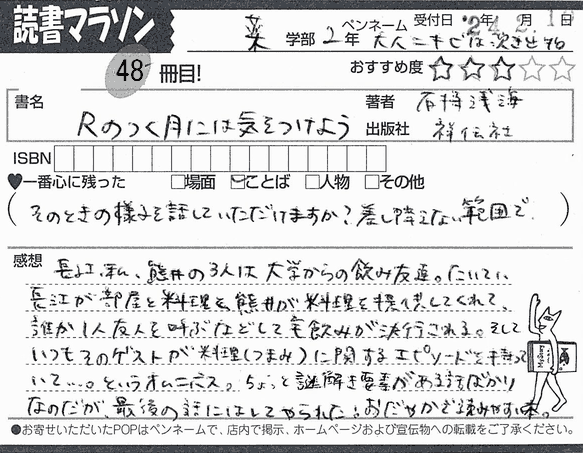 読書マラソン
薬 学部 2年 ペンネーム 大人ニキビは吹き出物 受付日 '24年 2月 1日
48 冊目!
おすすめ度 ☆☆☆☆☆
書名 Rのつく月には気をつけよう
著者 石持浅海
出版社 祥伝社
ISBN
♥一番心に残った □場面 ☑ことば □人物 □その他
(そのときの様子を話していただけますか?差し障りない範囲で。)
感想 長江、私、熊井の3人は大学からの飲み友達。たいてい、
長江が部屋と料理を、熊井が料理を提供してくれて、
誰か1人友人を呼ぶなどして宅飲みが決行される。そして
いつもそのゲストが料理(つまみ)に関するエピソードを持って
いて…。というオムニバス。ちょっと謎解き要素がある話ばかり
なのだが、最後の話にはしてやられた!おだやかで読みやすい本。
Mystery
●お寄せいただいたPOPはペンネームで、店内で掲示、ホームページおよび宣伝物への転載をご了承ください。